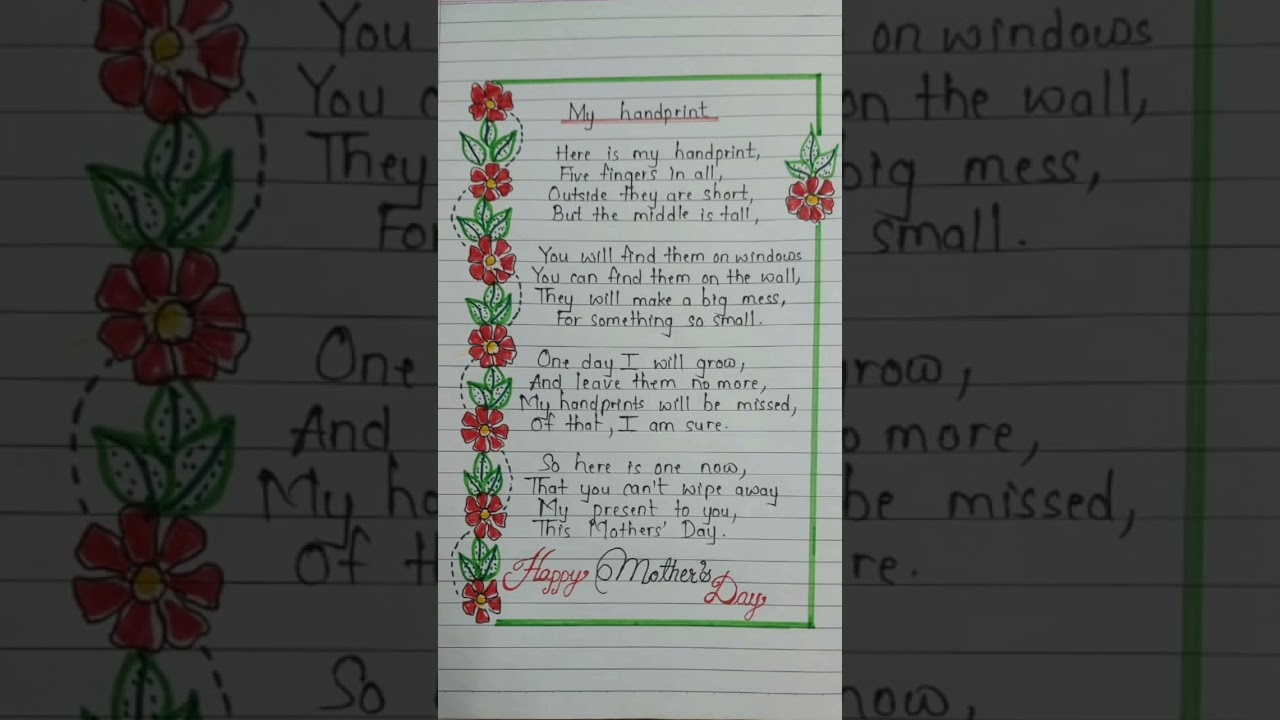 My handprint
Here is my handprint,
Five fingers in all,
Outside they are short,
But the middle is tall,
You will find them on windows
You can find them on the wall,
They will make a big mess,
For something so small.
One day I will grow,
And leave them no more,
My handprints will be missed,
Of that, I am sure.
So here is one now,
That you can't wipe away
My present to you,
This Mothers' Day.
Happy Mother's Day